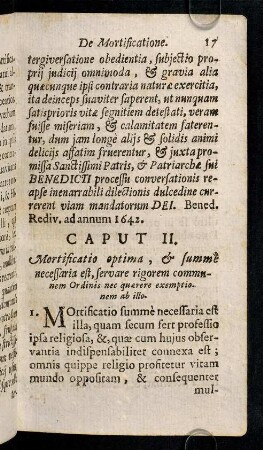 De Mortificatione. 17
tergiversatione obedientia, subjectio pro-
prij judicij omnimoda, & gravia alia
quæcunque ipsi contraria naturæ exercitia,
ita deinceps suaviter saperent, ut nunquam
satis prioris vitæ segnitiem detestati, veram
fuisse miseriam, & calamitatem fateren-
tur, dum jam longè alijs & solidis animi
delicijs affatim fruerentur, & juxta pro-
missa Sanctissimi Patris, & Patriarchæ sui
BENEDICTI processu conversationis re-
apse inenarrabili dilectionis dulcedine cur-
rerent viam mandatorum DEI. Bened.
Rediv. ad annum 1642.
CAPUT II.
Mortificatio optima, & summè
necessaria est, servare rigorem commu-
nem Ordinis nec quærere exemptio-
nem ab illo.
1. Mortificatio summè necessaria est
illa, quam secum fert professio
ipsa religiosa, &, quæ cum hujus obser-
vantia indispensabiliter connexa est;
omnis quippe religio profitetur vitam
mundo oppositam, & consequenter
mul-